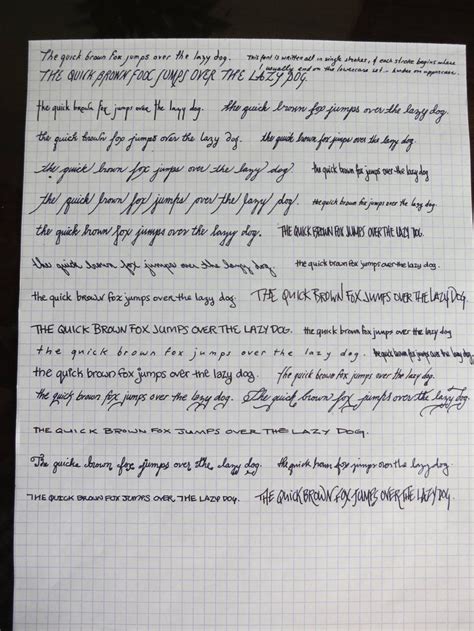 The quick brown fox jumps over the lazy dog. This font is written all in single strokes, & each stroke begins where
I usually end on the lowercase set — harder on uppercase.
THE QUICK BROWN FOOX JUMPS OVER THE LAZY DOG
the quick brown fox jumps over the lazy dog. the quick brown fox jumps over the lazy dog.
the quick brown fox jumps over the lazy dog. the quick brown fox jumps over the lazy dog.
the quick brown fox jumps over the lazy dog the quick brown fox jumps over the lazy dog
the quick brown fox jumps over the lazy dog. the quick brown fox jumps over the lazy dog.
the quick brown fox jumps over the lazy dog. THE QUICK BROWN FOX JUMPS OVER THE LAZY DOG.
the quick brown fox jumps over the lazy dog. the quick brown fox jumps over the lazy dog.
the quick brown fox jumps over the lazy dog. THE QUICK BROWN FOX JUMPS OVER THE LAZY DOG.
THE QUICK BROWN FOX JUMPS OVER THE LAZY DOG. the quick brown fox jumps over the lazy dog.
the quick brown fox jumps over the lazy dog. the quick brown fox jumps over the lazy dog.
the quick brown fox jumps over the lazy dog. The quick brown fox jumps over the lazy dog.
the quick brown fox jumps over the lazy dog. The quick brown fox jumps over the lazy dog.
THE QUICK BROWN FOX JUMPS OVER THE LAZY DOG.
The quick brown fox jumps over the lazy dog. the quick brown fox jumps over the lazy dog.
THE QUICK BROWN FOX JUMPS OVER THE LAZY DOG. THE QUICK BROWN FOX JUMPS OVER THE LAZY DOG.